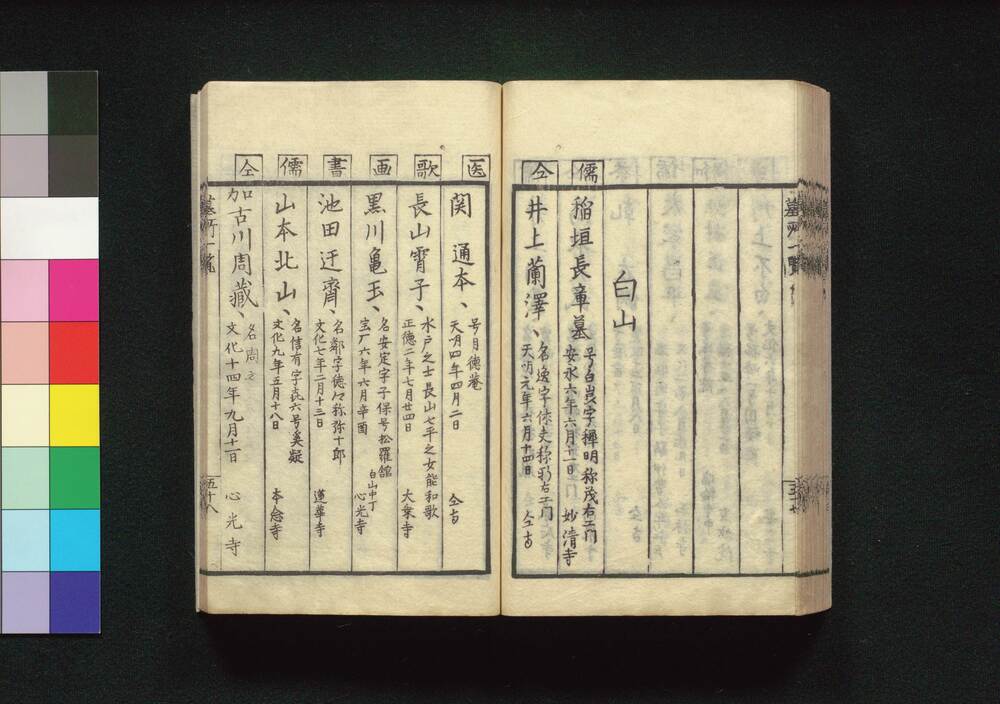 白山
儒
稲垣長章墓
号白嵓字穉明称茂右エ門
安永六年六月廿一日 妙清寺
仝
井上蘭澤、
名逸字休夫称新右エ門
天明元年六月十四日 仝寺
医
関 通本、
号月徳菴
天明四年四月二日 仝寺
歌
長山霄子、
水戸之士長山七平之女能和歌
正德二年七月廿四日 大乗寺
画
黒川亀玉、
名安定字子保号松蘿館
宝厂六年六月辛酉
白山中丁
心光寺
書
池田迂齊、
名鄰字徳々称弥十郎
文化七年二月十三日 蓮華寺
儒
山本北山、
名信有字㐂六号奚疑
文化九年五月十八日 本念寺
仝
加古川周蔵、
名周之
文化十四年九月十一日 心光寺
墓所一覧
五十八